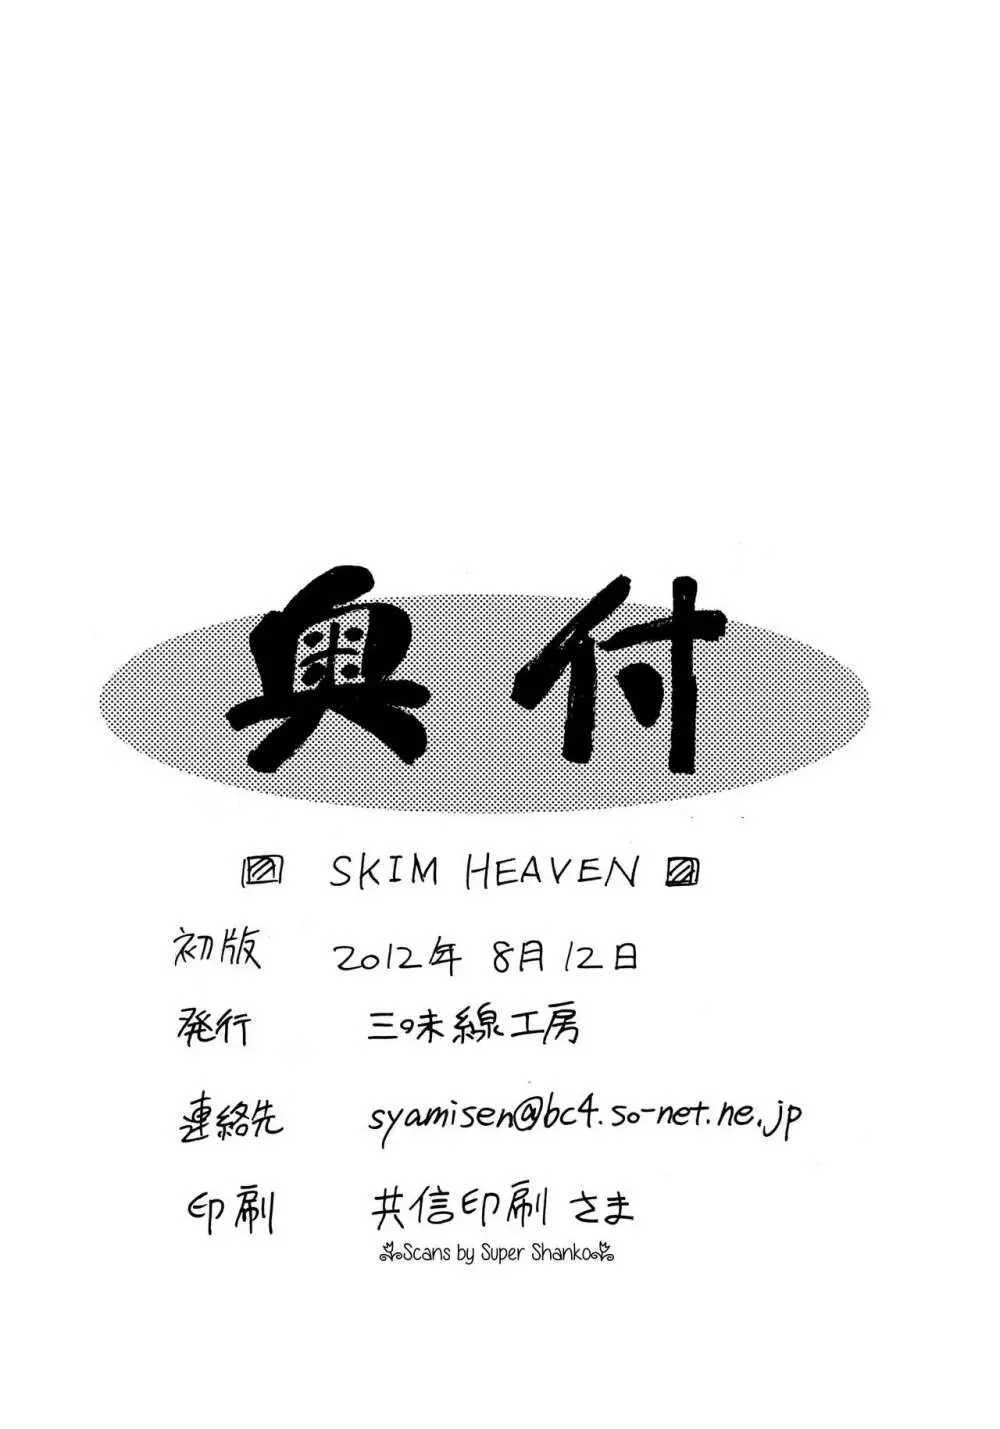 奥付
SKIM HEAVEN
初版 2012年 8月12日
発行 三味線工房
連絡先 syamisen@bc4.so-net.ne.jp
印刷 共信印刷 さま
Scans by Super Shanko